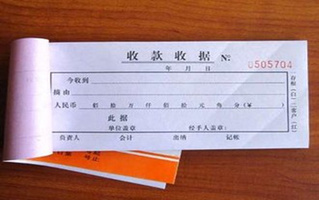 收款收据 № 0505704
年 月 日
今收到
摘由
人民币 佰 拾 万 仟 佰 拾 元 角 分 (¥ )
此据
单位盖章 经手人盖章:
负责人 会计 出纳 记帐